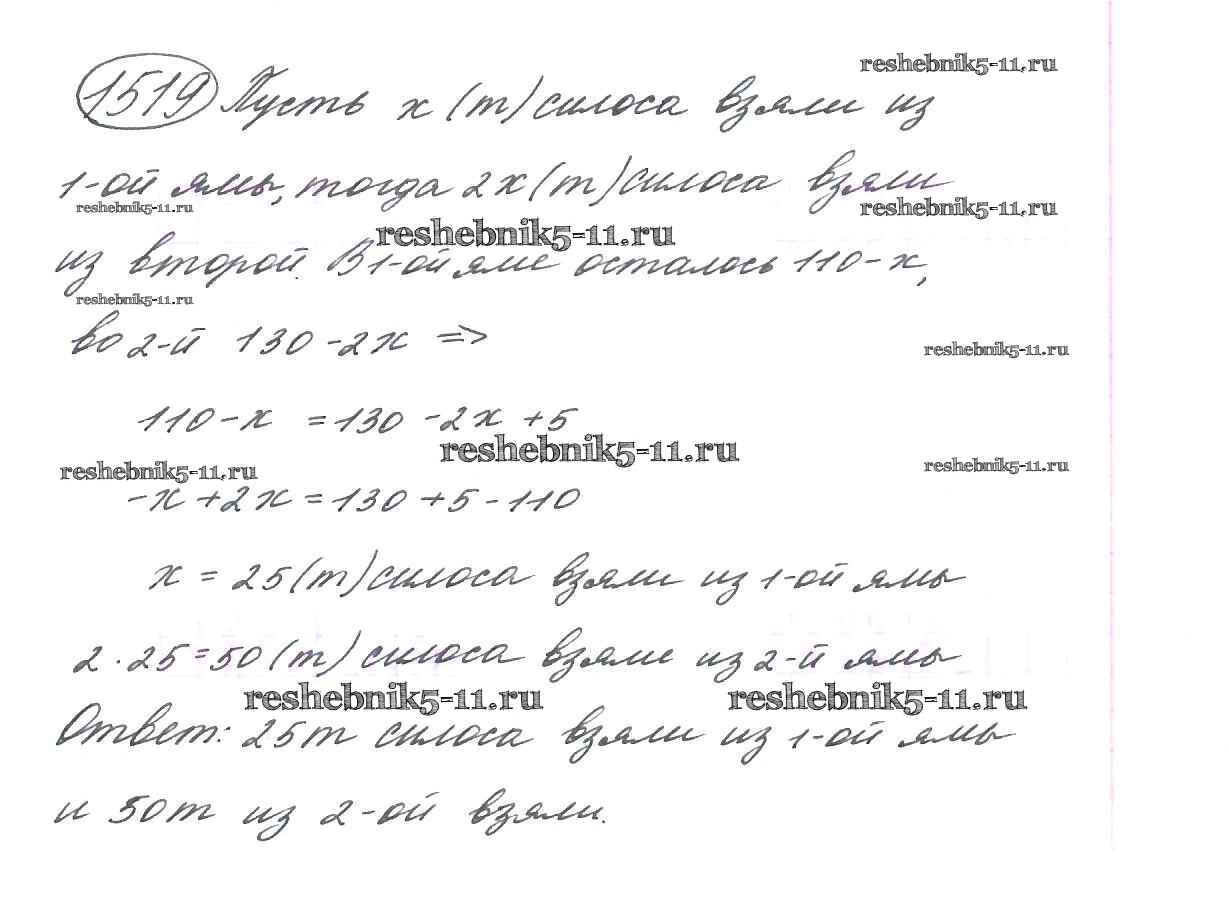 reshebnik5-11.ru
1519 Пусть x (т) силоса взяли из
1-ой ямы, тогда 2x (т) силоса взяли
reshebnik5-11.ru reshebnik5-11.ru
reshebnik5-11.ru
из второй. В 1-ой яме осталось 110-x,
reshebnik5-11.ru
во 2-й 130-2x =>
reshebnik5-11.ru
110-x = 130-2x+5
reshebnik5-11.ru
reshebnik5-11.ru reshebnik5-11.ru
-x+2x=130+5-110
x = 25 (т) силоса взяли из 1-ой ямы
2·25=50 (т) силоса взяли из 2-й ямы
reshebnik5-11.ru reshebnik5-11.ru
Ответ: 25т силоса взяли из 1-ой ямы
и 50т из 2-ой взяли.